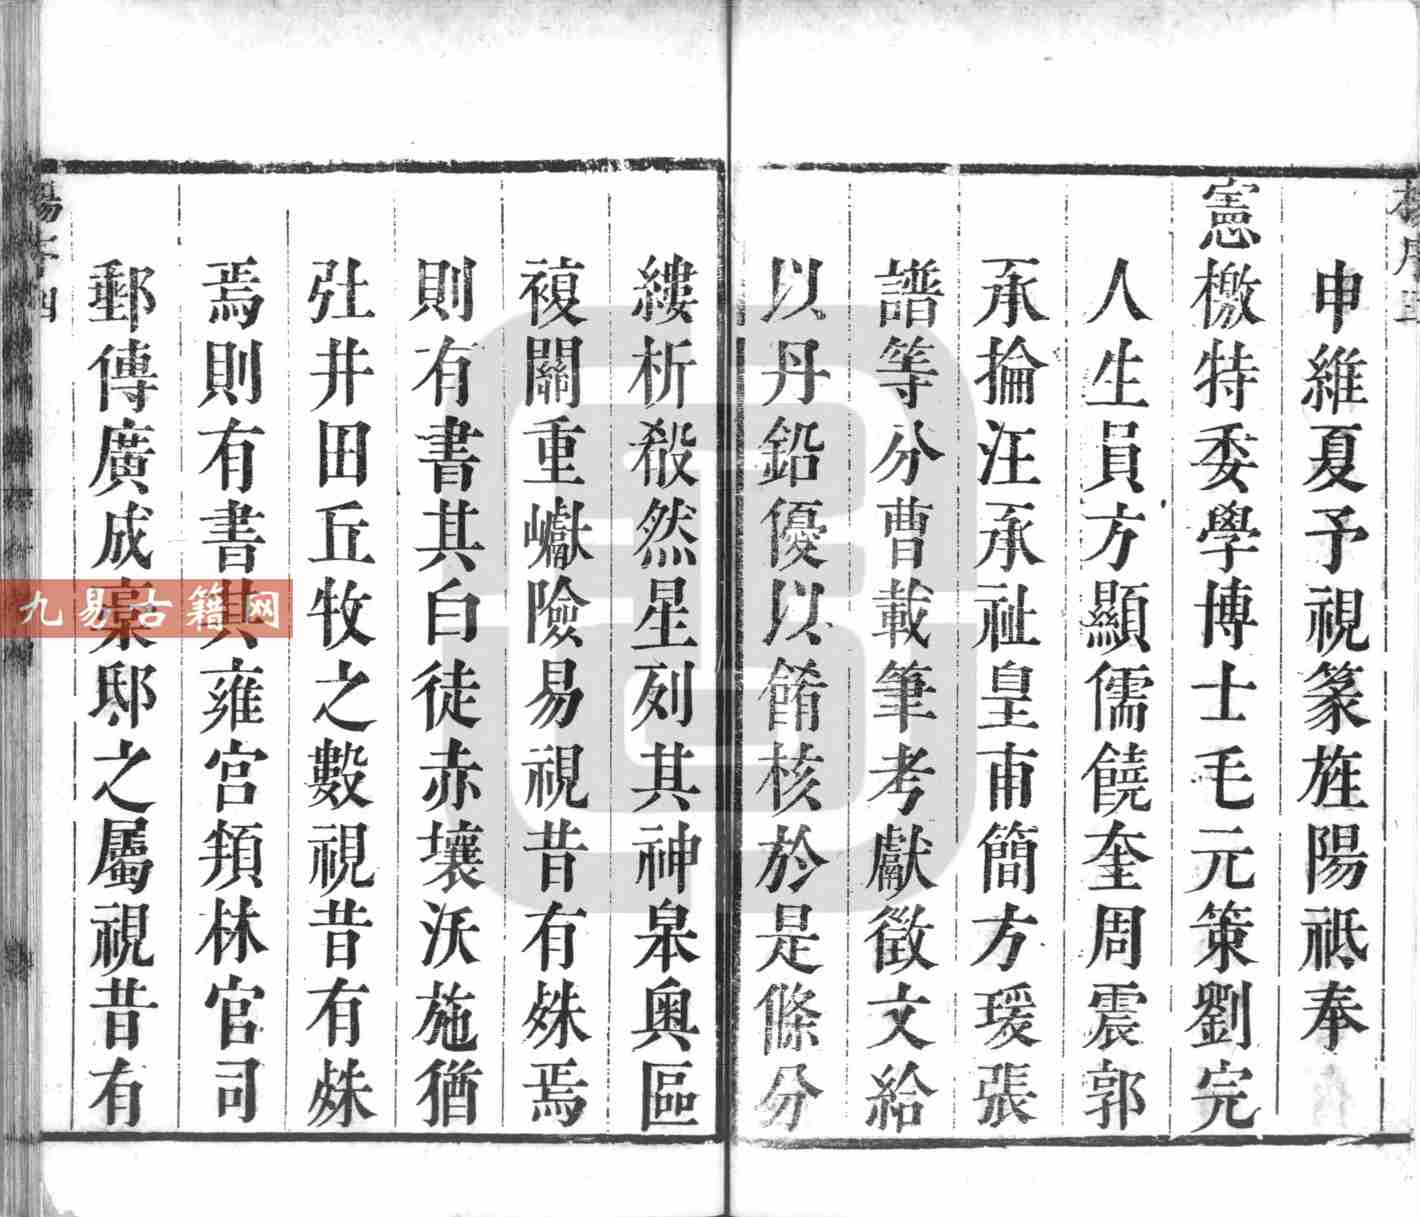 申維夏予視篆旌陽祗奉
憲檄特委學博士毛元策劉完
人生員方顯儒饒奎周震郭
承掄汪承祉皇甫簡方瑗張
譜等分曹載筆考獻徵文給
以丹鉛優以餚核於是條分
縷析殺然星列其神皋奧區
複關重巘險易視昔有殊焉
則有書其白徒赤壤沃施猶
𢎞井田丘牧之數視昔有殊
焉則有書其雍宮頖林官司
郵傳廣成稾邸之屬視昔有
九易古籍网